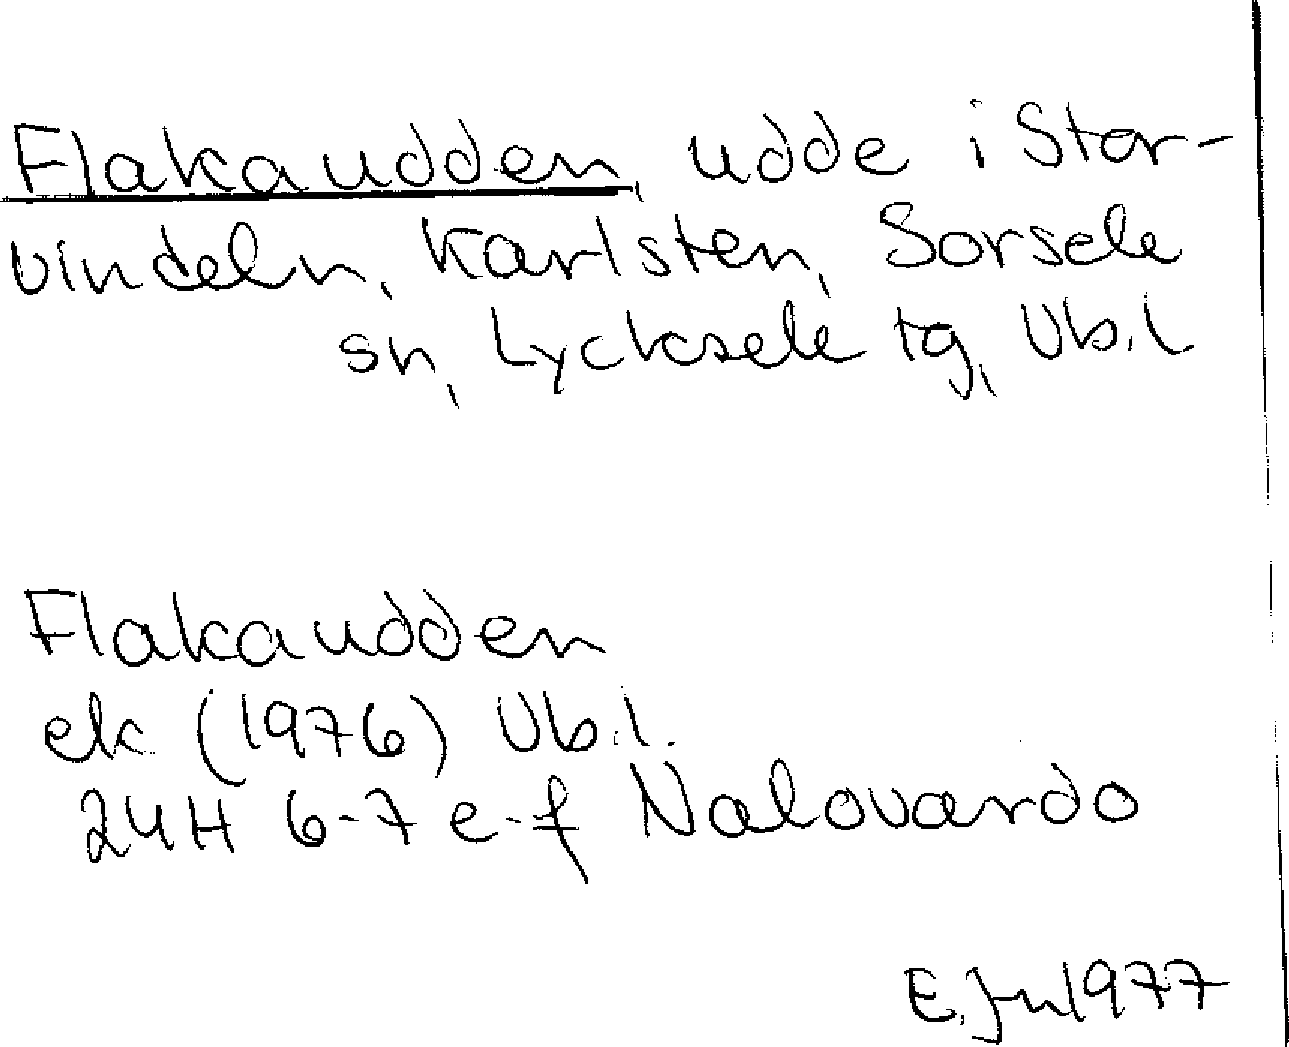 Flakaudden, udde i Stor-
vindeln, Karlsten, Sorsele
sn, Lycksele tg, Vb.l
Flakaudden
ek (1976) Vb.l.
24H 6-7 e-f Nalovardo
E. Jn 1977